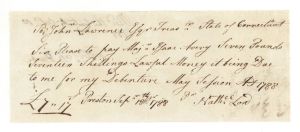 To John Lawrence Esqr Treasr State of Connecticut
Sir Please to pay Majr Isaac Avery Seven Pounds
Seventeen Shillings Lawful Money it being Due
to me for my Debenture May Session AD 1788
£7 - 17 Preston Sepr 18th 1788 Nathl Lord